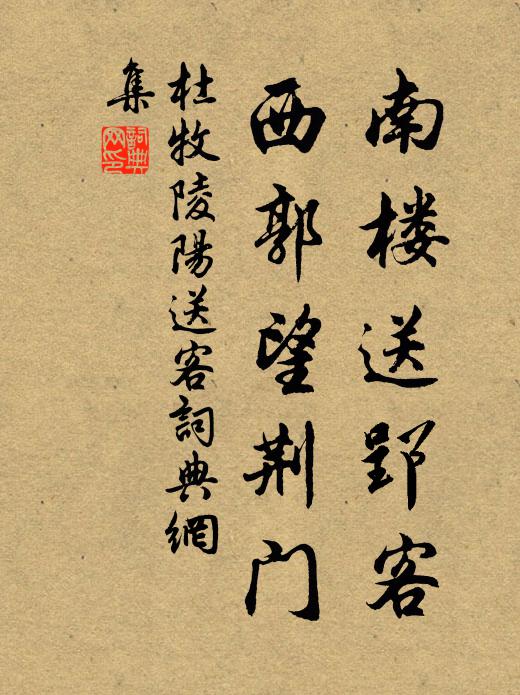 南楼送郢客
西郭望荆门
杜牧陵陽送客詞典網
集
詞典
网印